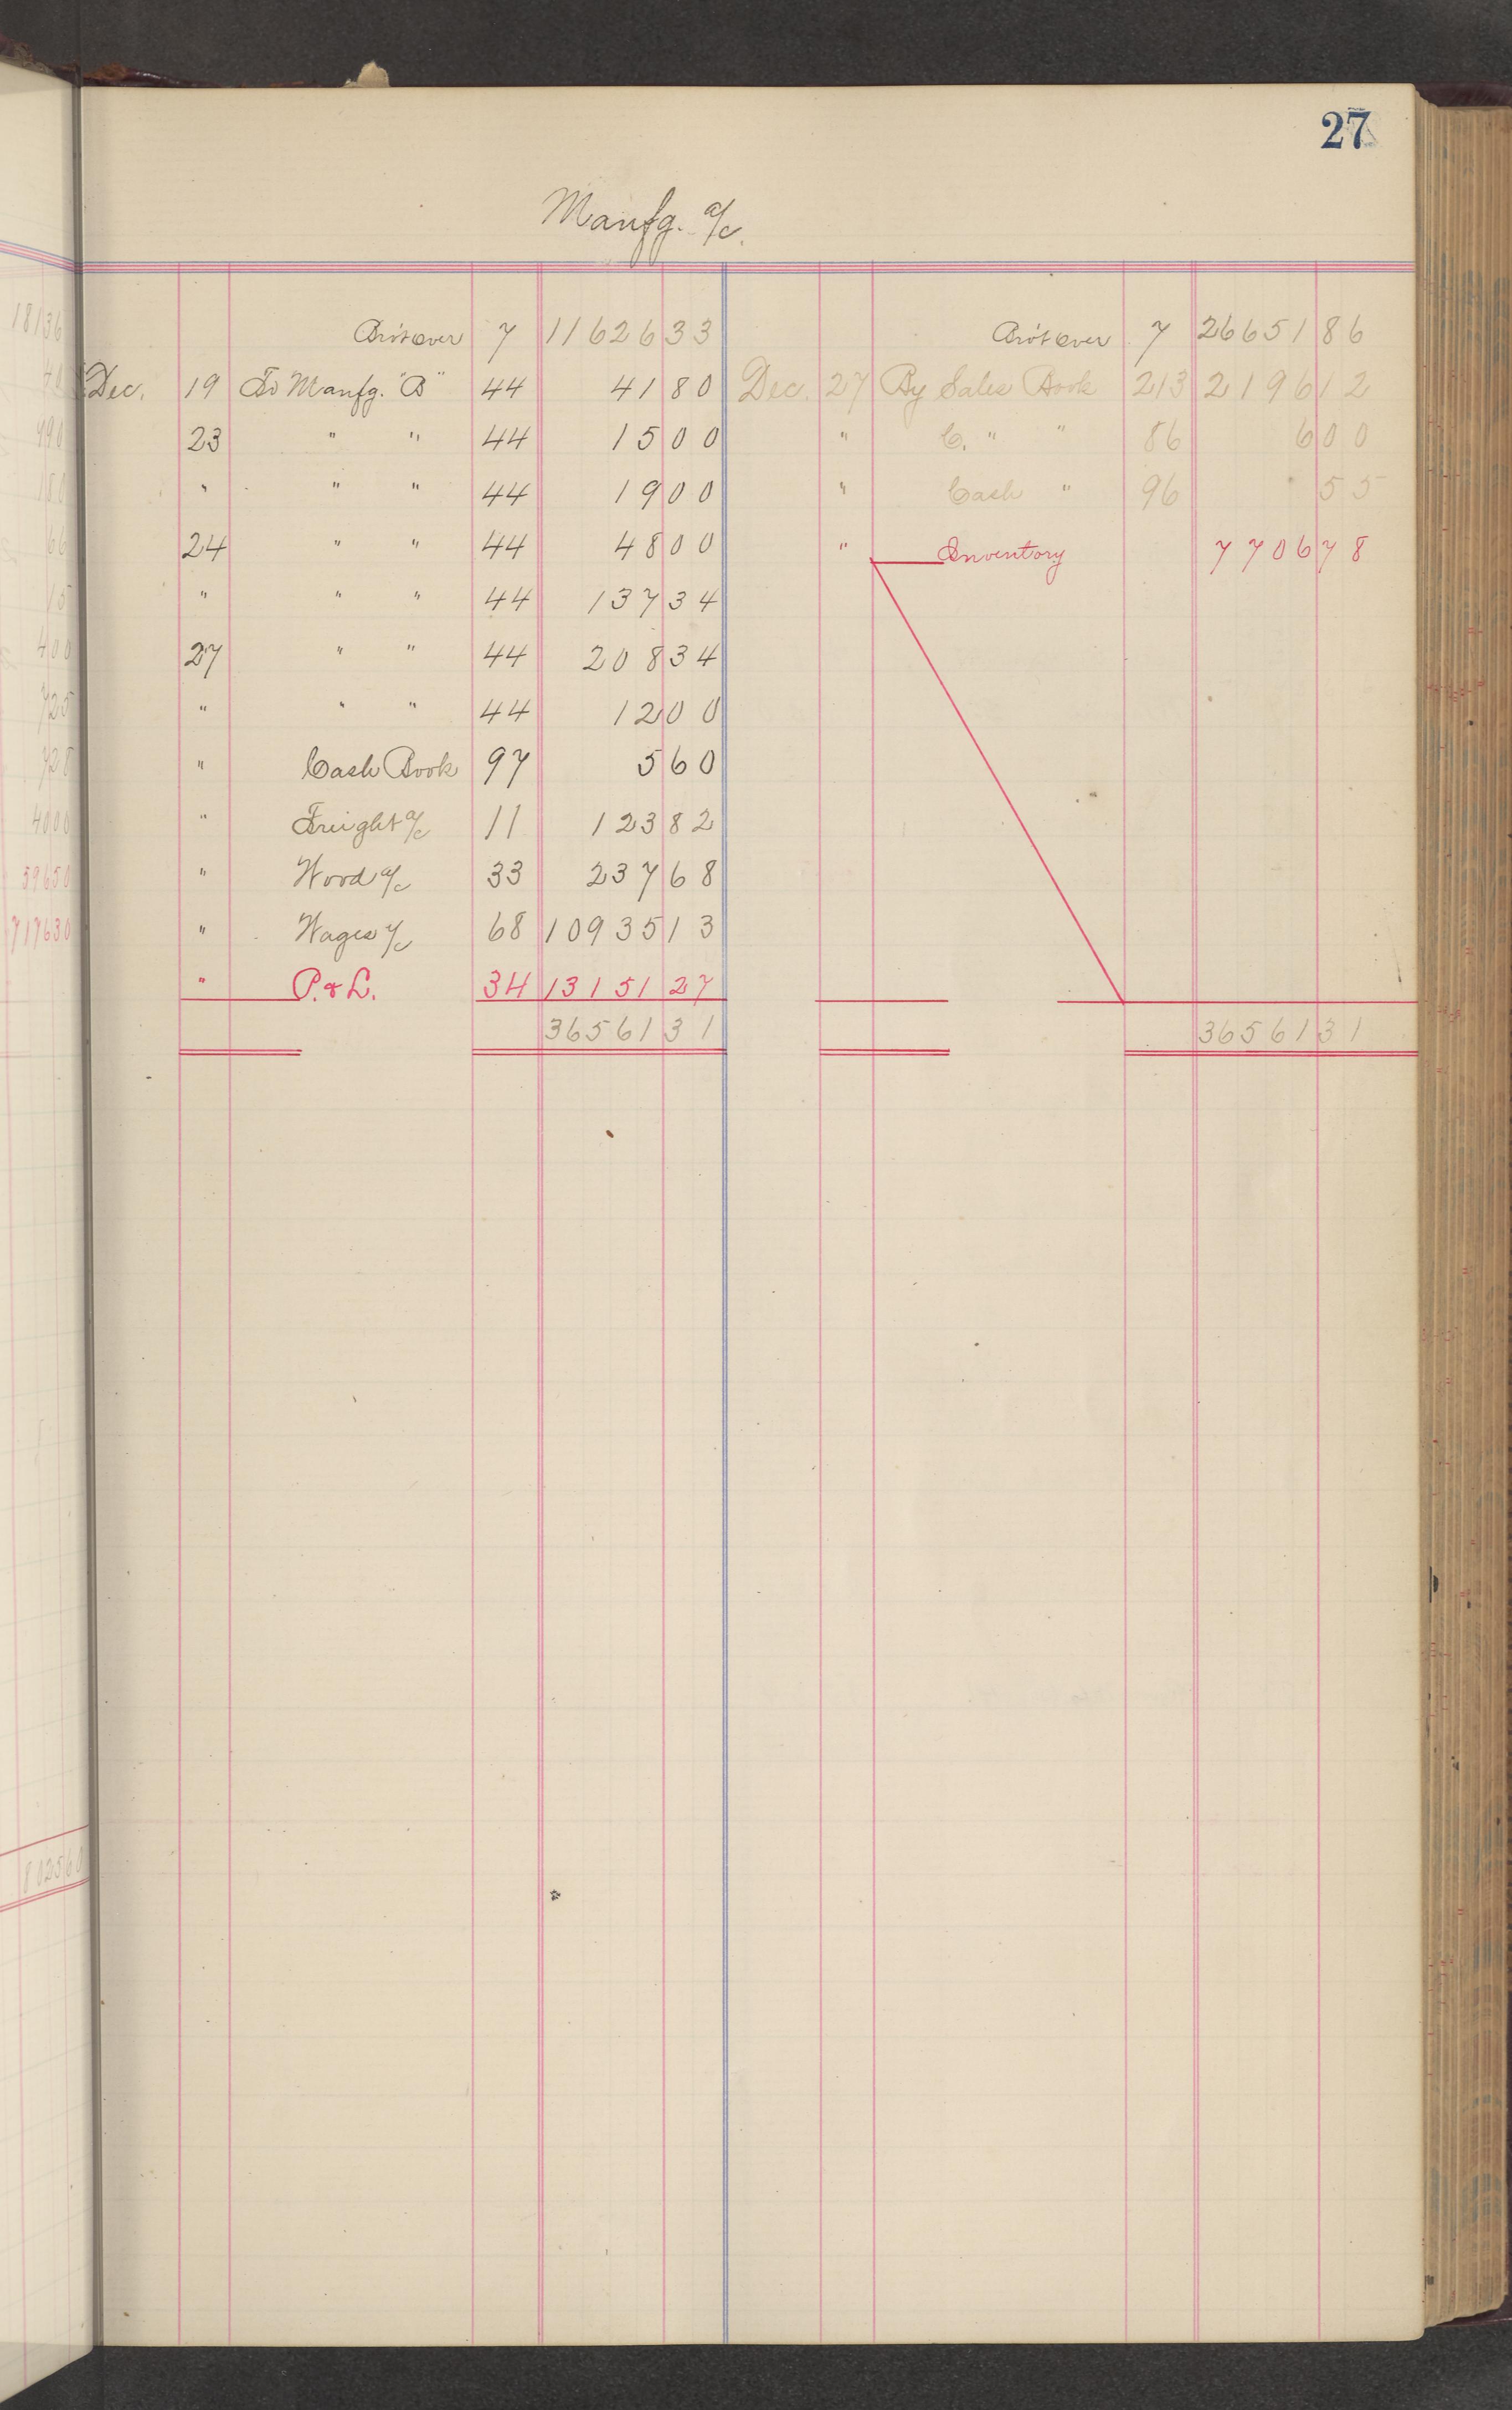 27
Manfg. a/c.
Bro't over 7 11626 33 Bro't over 7 26651 86
Dec. 19 To Manfg. "B" 44 41 80 Dec. 27 By Sales Book 213 2196 12
23 " " 44 15 00 " C. " " 86 6 00
" " " 44 19 00 " Cash " 96 55
24 " " 44 48 00 " Inventory 7706 78
" " " 44 137 34
27 " " 44 208 34
" " " 44 12 00
" Cash Book 97 5 60
" Freight a/c 11 123 82
" Wood a/c 33 237 68
" Wages a/c 68 10935 13
" P. & L. 34 13151 27
36561 31 36561 31
18136
490
150
66
15
400
725
728
4000
59650
717630
802560